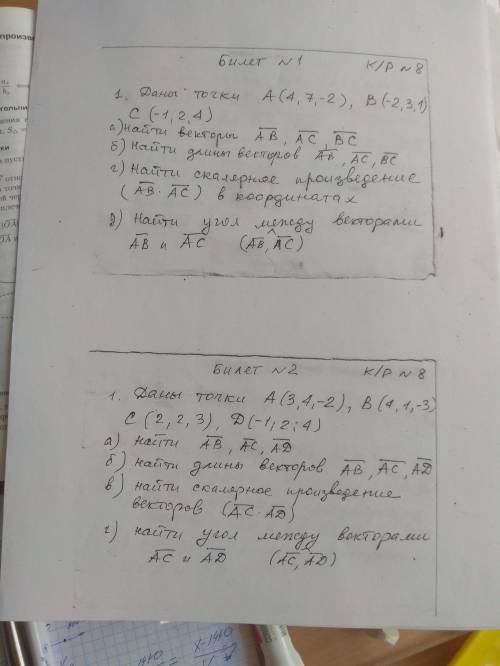 Билет №1 К/Р №8
1. Даны точки А(4,7,-2), В(-2,3,1)
С(-1,2,4)
а) Найти векторы АВ, АС, ВС
б) Найти длины векторов АВ, АС, ВС
г) Найти скалярное произведение
(АВ · АС) в координатах
д) Найти угол между векторами
АВ и АС (АВ, АС)
Билет №2 К/Р №8
1. Даны точки А(3,4,-2), В(4,1,-3)
С(2,2,3), D(-1,2;4)
а) найти АВ, АС, АD
б) найти длины векторов АВ, АС, АD
в) найти скалярное произведение
векторов (АС · АD)
г) найти угол между векторами
АС и АD (АС, АD)